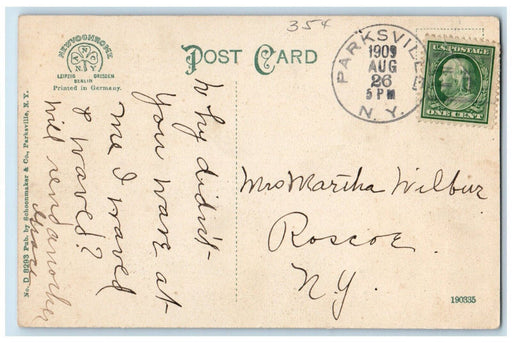 354
NEWVOCHROME
A N C
N.Y.
LEIPZIG DRESDEN
BERLIN
Printed in Germany.
POST CARD
PARKSVILLE
1909
AUG
26
5 PM
N.Y.
U.S. POSTAGE
ONE CENT
Why didn't
you wave at
me I waved
& waved?
Will send another
Grace
Mrs Martha Wilbur
Roscoe
N.Y.
No. D 8293 Pub. by Schoonmaker & Co., Parksville, N. Y.
190335